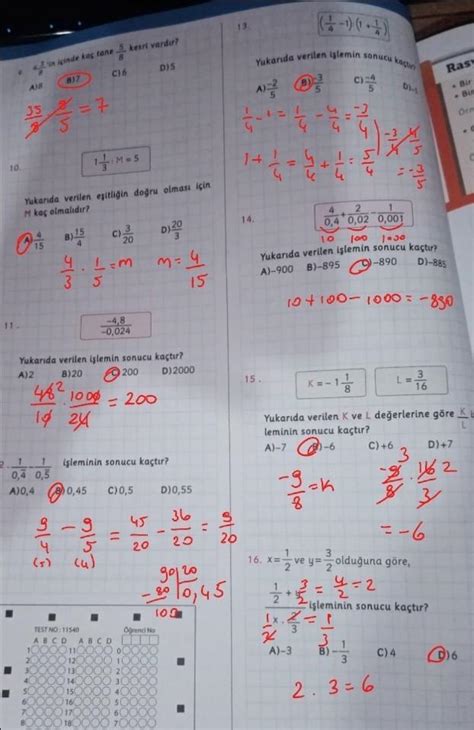 içinde kaç tane 5/8 kesri vardır?
A)8 B)7 C)6 D)5
35/8 · 8/5 = 7
10.
1 1/3 : M = 5
Yukarıda verilen eşitliğin doğru olması için
M kaç olmalıdır?
A) 4/15 B) 15/4 C) 3/20 D) 20/3
4/3 · 1/5 = m m = 4/15
11.
-4,8/-0,024
Yukarıda verilen işlemin sonucu kaçtır?
A)2 B)20 C)200 D)2000
48 2/10 · 1000/24 = 200
1/0,4 - 1/0,5 işleminin sonucu kaçtır?
A)0,4 B)0,45 C)0,5 D)0,55
9/4 - 9/5 = 45/20 - 36/20 = 9/20
(5) (4)
90 20
- 80 0,45
100
TEST NO: 11549 Öğrenci No
A B C D A B C D
1 11 0
2 12 1
3 13 2
4 14 3
5 15 4
6 16 5
7 17 6
8 18 7
13.
(1/4 - 1) · (1 + 1/4)
Yukarıda verilen işlemin sonucu kaçtır?
A) -2/5 B) -3/5 C) -4/5 D)-1
1/4 - 1 = 1/4 - 4/4 = -3/4
1 + 1/4 = 4/4 + 1/4 = 5/4
-3/4 · 4/5
= -3/5
14.
4/0,4 + 2/0,02 - 1/0,001
10 100 1000
Yukarıda verilen işlemin sonucu kaçtır?
A)-900 B)-895 C)-890 D)-885
10 + 100 - 1000 = -890
15.
K = - 1 1/8 L = 3/16
Yukarıda verilen K ve L değerlerine göre K/L
leminin sonucu kaçtır?
A)-7 B)-6 C)+6 D)+7
-9/8 = K
3 -9/8 · 16 2/3
= -6
16. x= 1/2 ve y= 3/2 olduğuna göre,
1/2 + 3/2 = 4/2 = 2
işleminin sonucu kaçtır?
1/2 · 2/3 = 1/3
A)-3 B) -1/3 C) 4 D) 6
2 . 3 = 6
Bir